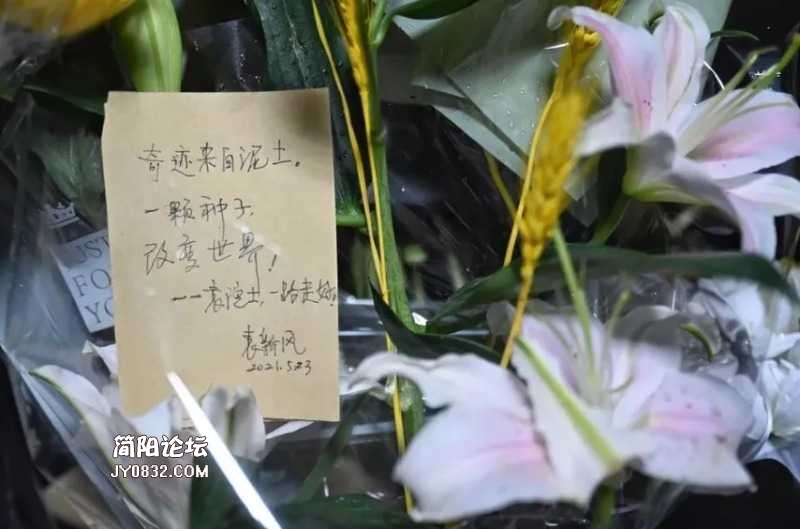 奇迹来自泥土。
一颗种子,
改变世界!
——袁隐士,一路走好!
袁新风
2021.5.23
JUST
FO
YO
简阳论坛
JY0832.COM